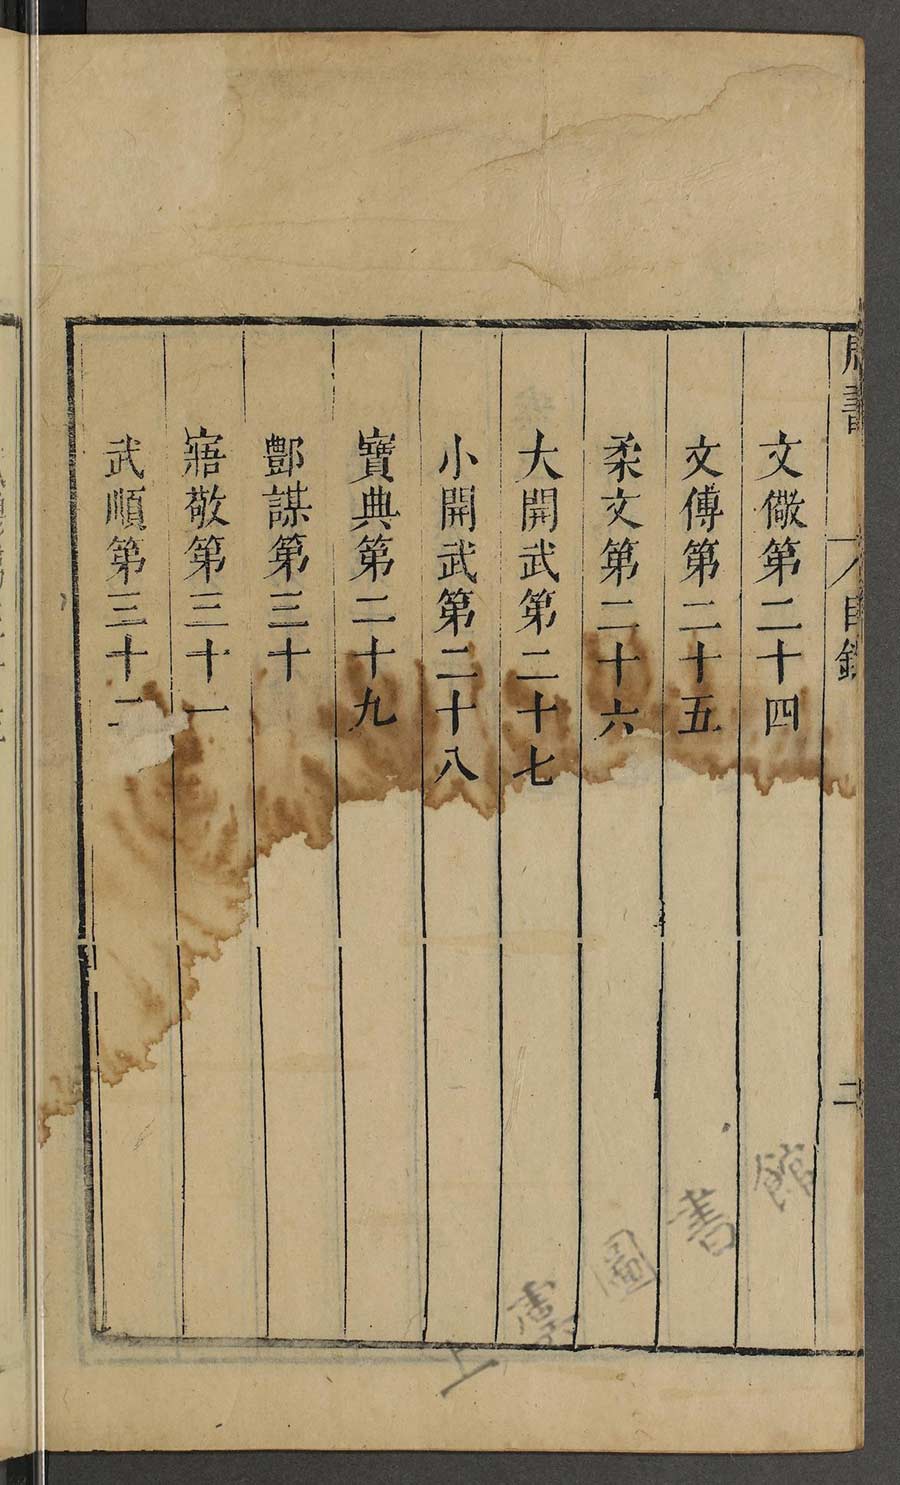 書
目錄
二
文儆第二十四
文傳第二十五
柔文第二十六
大開武第二十七
小開武第二十八
寶典第二十九
酆謀第三十
寤敬第三十一
武順第三十二
上虞圖書館